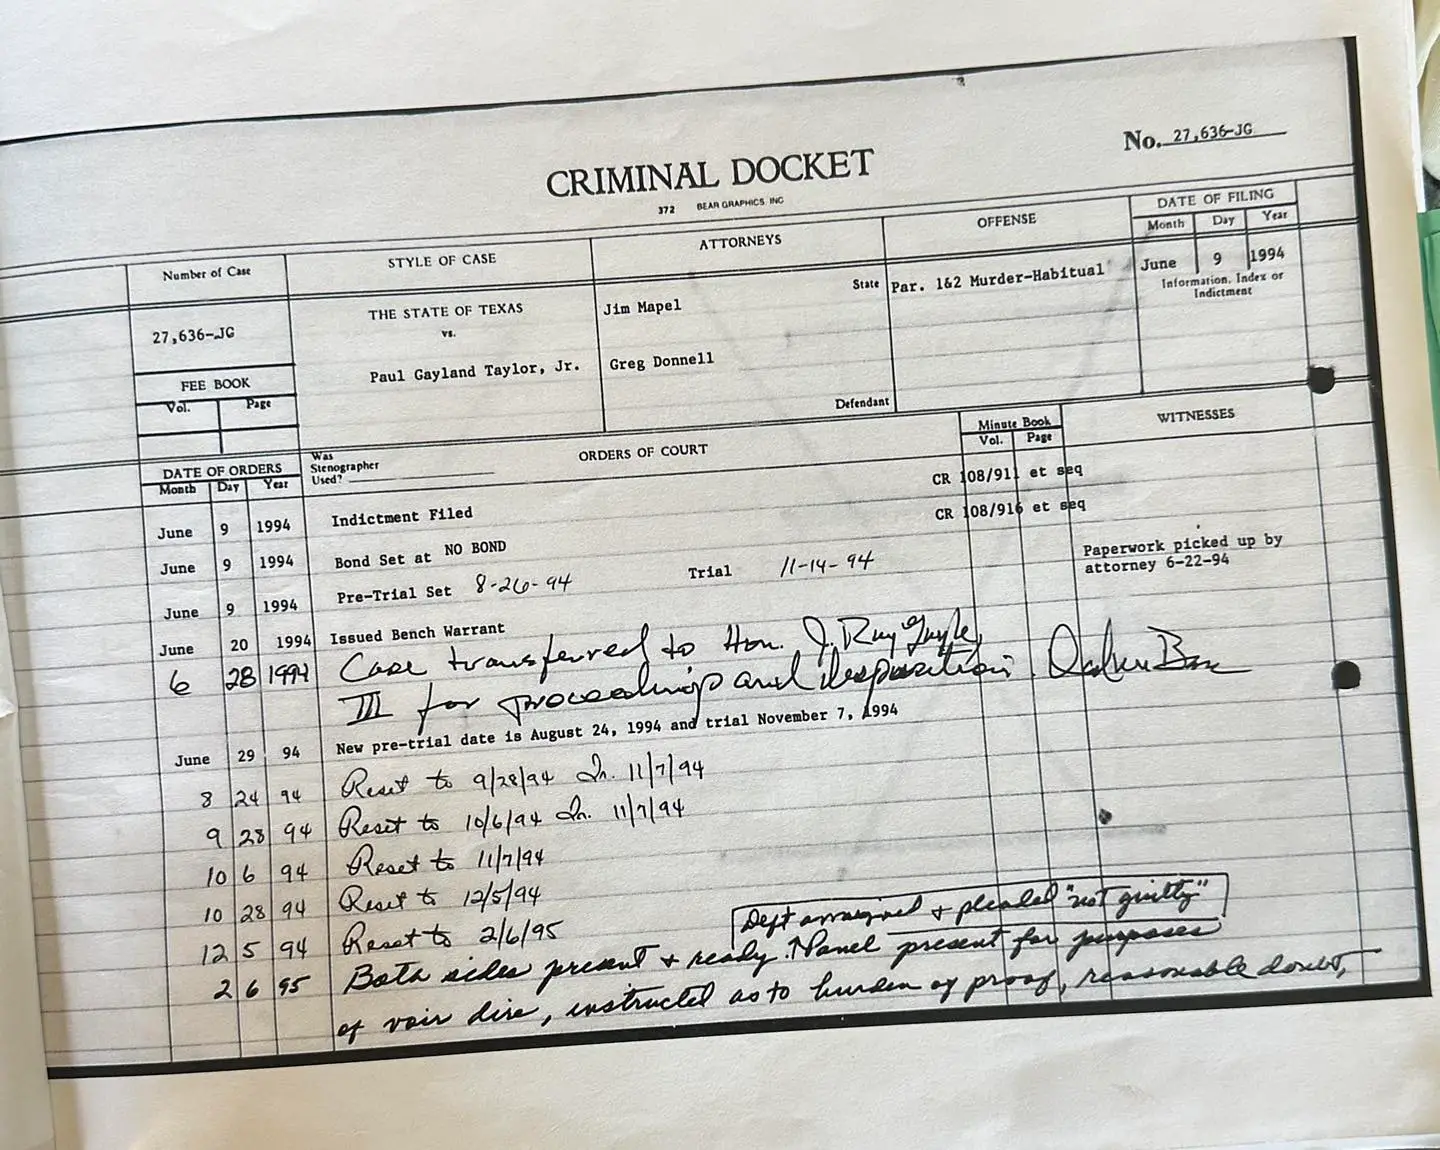 No. 27,636-JG
CRIMINAL DOCKET
372 BEAR GRAPHICS INC
Number of Case
STYLE OF CASE
ATTORNEYS
OFFENSE
DATE OF FILING
Month Day Year
27,636-JG
THE STATE OF TEXAS
vs.
Paul Gayland Taylor, Jr.
Jim Mapel
State
Greg Donnell
Defendant
Par. 1&2 Murder-Habitual
June 9 1994
Information, Index or
Indictment
FEE BOOK
Vol. Page
DATE OF ORDERS
Month Day Year
Was
Stenographer
Used?
ORDERS OF COURT
Minute Book
Vol. Page
WITNESSES
June 9 1994 Indictment Filed CR 108/911 et seq
June 9 1994 Bond Set at NO BOND CR 108/916 et seq
June 9 1994 Pre-Trial Set 8-26-94 Trial 11-14-94
Paperwork picked up by
attorney 6-22-94
June 20 1994 Issued Bench Warrant
6 28 1994 Case transferred to Hon. J. Ray Gayle
III for proceedings and disposition.
June 29 94 New pre-trial date is August 24, 1994 and trial November 7, 1994
8 24 94 Reset to 9/28/94 11/7/94
9 28 94 Reset to 10/6/94 11/7/94
10 6 94 Reset to 11/7/94
10 28 94 Reset to 12/5/94
12 5 94 Reset to 2/6/95
Deft arraigned & pleaded "not guilty"
2 6 95 Both sides present & ready. Panel present for purposes
of voir dire, instructed as to burden of proof, reasonable doubt,